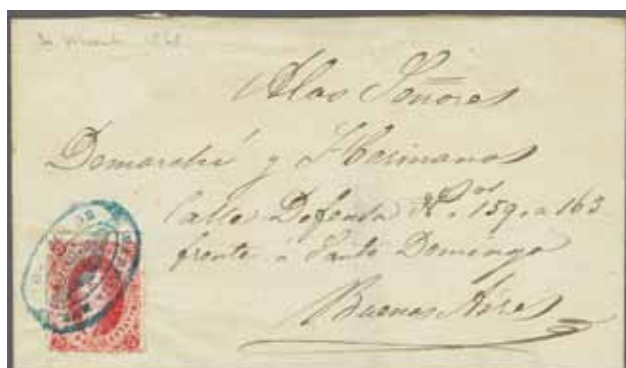 A los Señores
Demarchi y Hermanos
Calle Defensa Nos. 159. a 163
frente á Santo Domingo
Buenos Aires